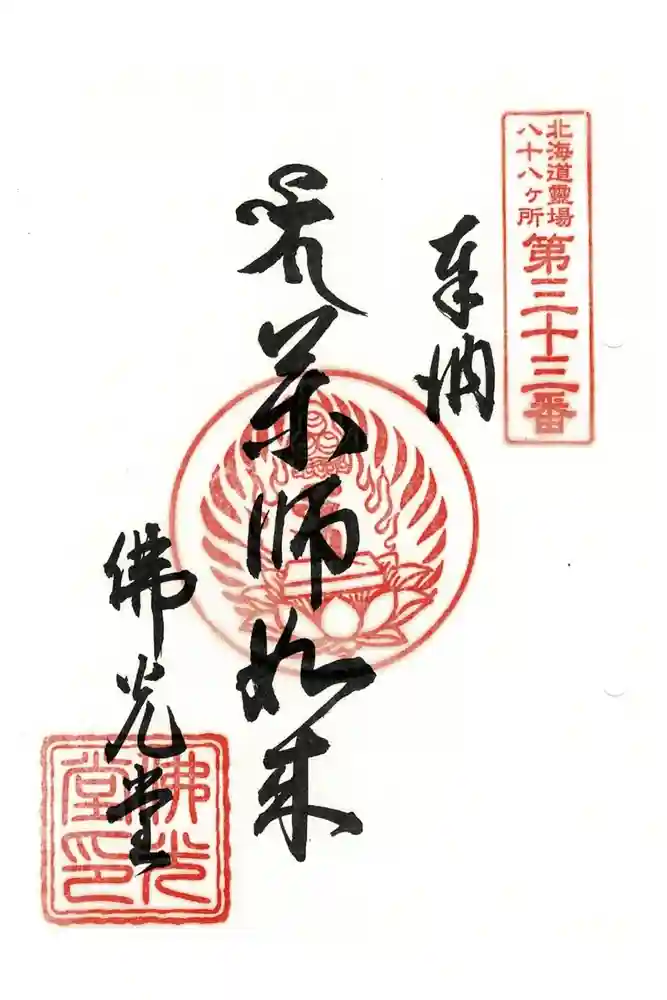 北海道靈場
八十八ヶ所
第三十三番
奉納
薬師如来
佛光堂
佛光堂印